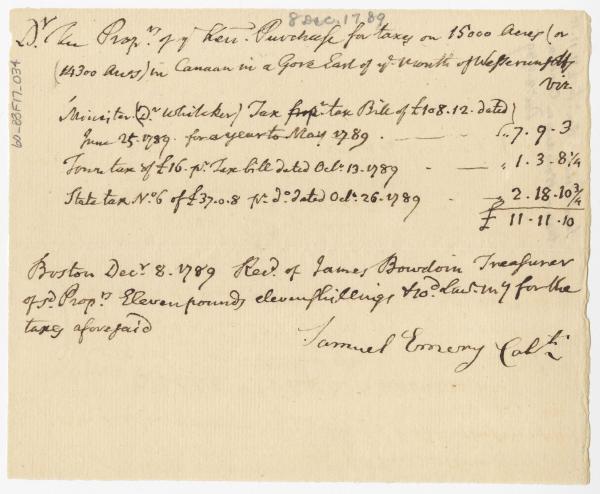 8 Dec. 1789
Dr. The Propⁿˢ of yᵉ Kenᶜ. Purchase for taxes on 15000 Acres (or
(14300 Acres) in Canaan in a Gore East of yᵉ Mouth of
viz.
Minister (Dʳ Whitaker) Tax pʳ. tax Bill of £108.12. dated
June 25. 1789. for a year to May 1789. - - " 7. 9. 3
Town tax of £16. pʳ. Tax bill dated Octʳ. 13. 1789 - " 1. 3. 8 1/4
State tax No. 6 of £37.0.8 pʳ. dᵒ dated Octʳ. 26. 1789 - " 2. 18. 10 3/4
£ 11. 11. 10
Boston Decʳ. 8. 1789 Recᵈ. of James Bowdoin Treasurer
of sᵈ. Propʳˢ Eleven pounds eleven shillings & 10ᵈ. Law. mʸ for the
taxes aforesaid
Samuel Emery
60-88F17-034